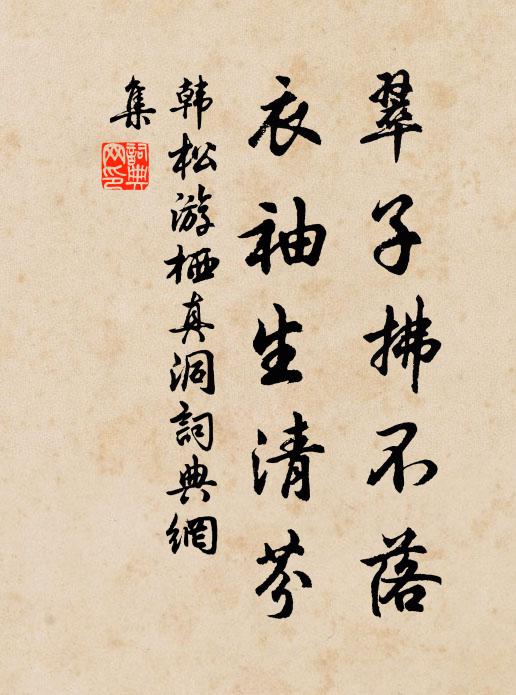 翠子拂不落
衣袖生清芬
韩松游栖真洞詞典網
集
詞典網印